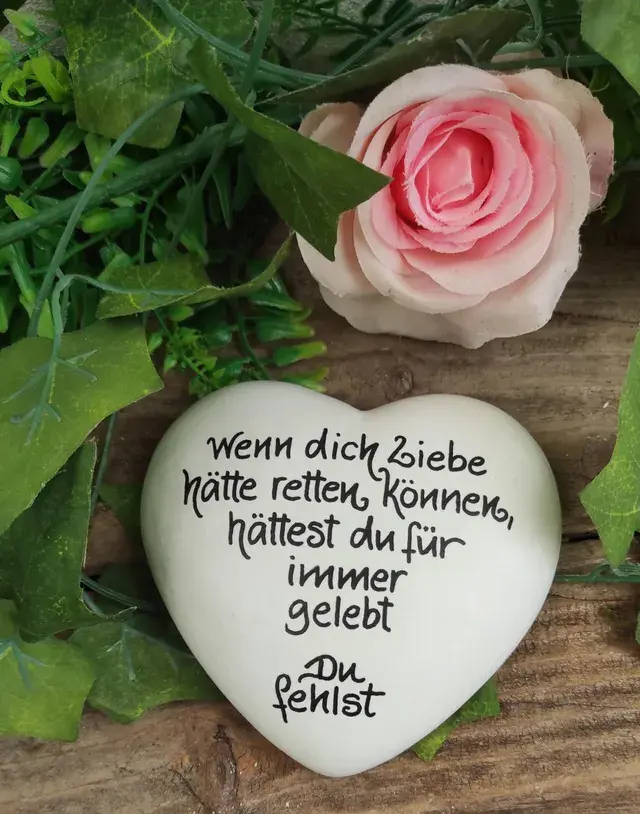 wenn dich Liebe
hätte retten können,
hättest du für
immer
gelebt
Du
fehlst